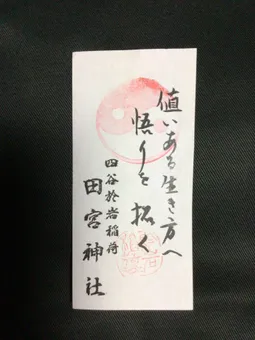 値いある生き方へ
悟りを拓く
四谷於岩稲荷
田宮神社